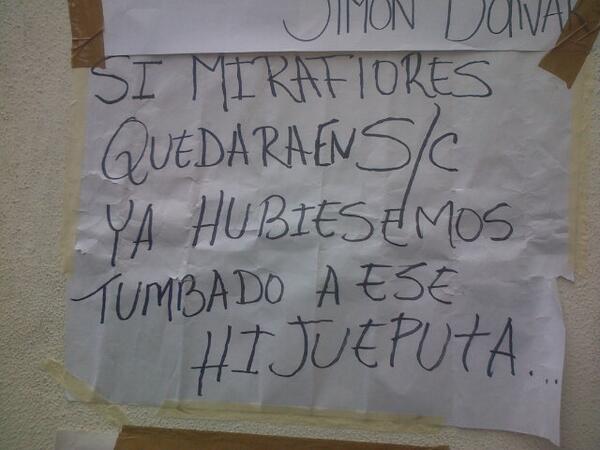 SIMON BOLIVAR
SI MIRAFLORES
QUEDARA EN S/C
YA HUBIESEMOS
TUMBADO A ESE
HIJUEPUTA...